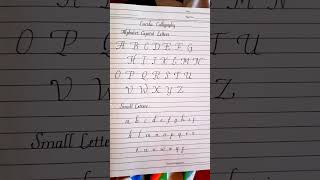 Cursive Calligraphy
Alphabet Capital Letters
A B C D E F G
H I J K L M N
O P Q R S T U
V W X Y Z
Small Letters
a b c d e f g h i j
k l m n o p q r s
t u v w x y z